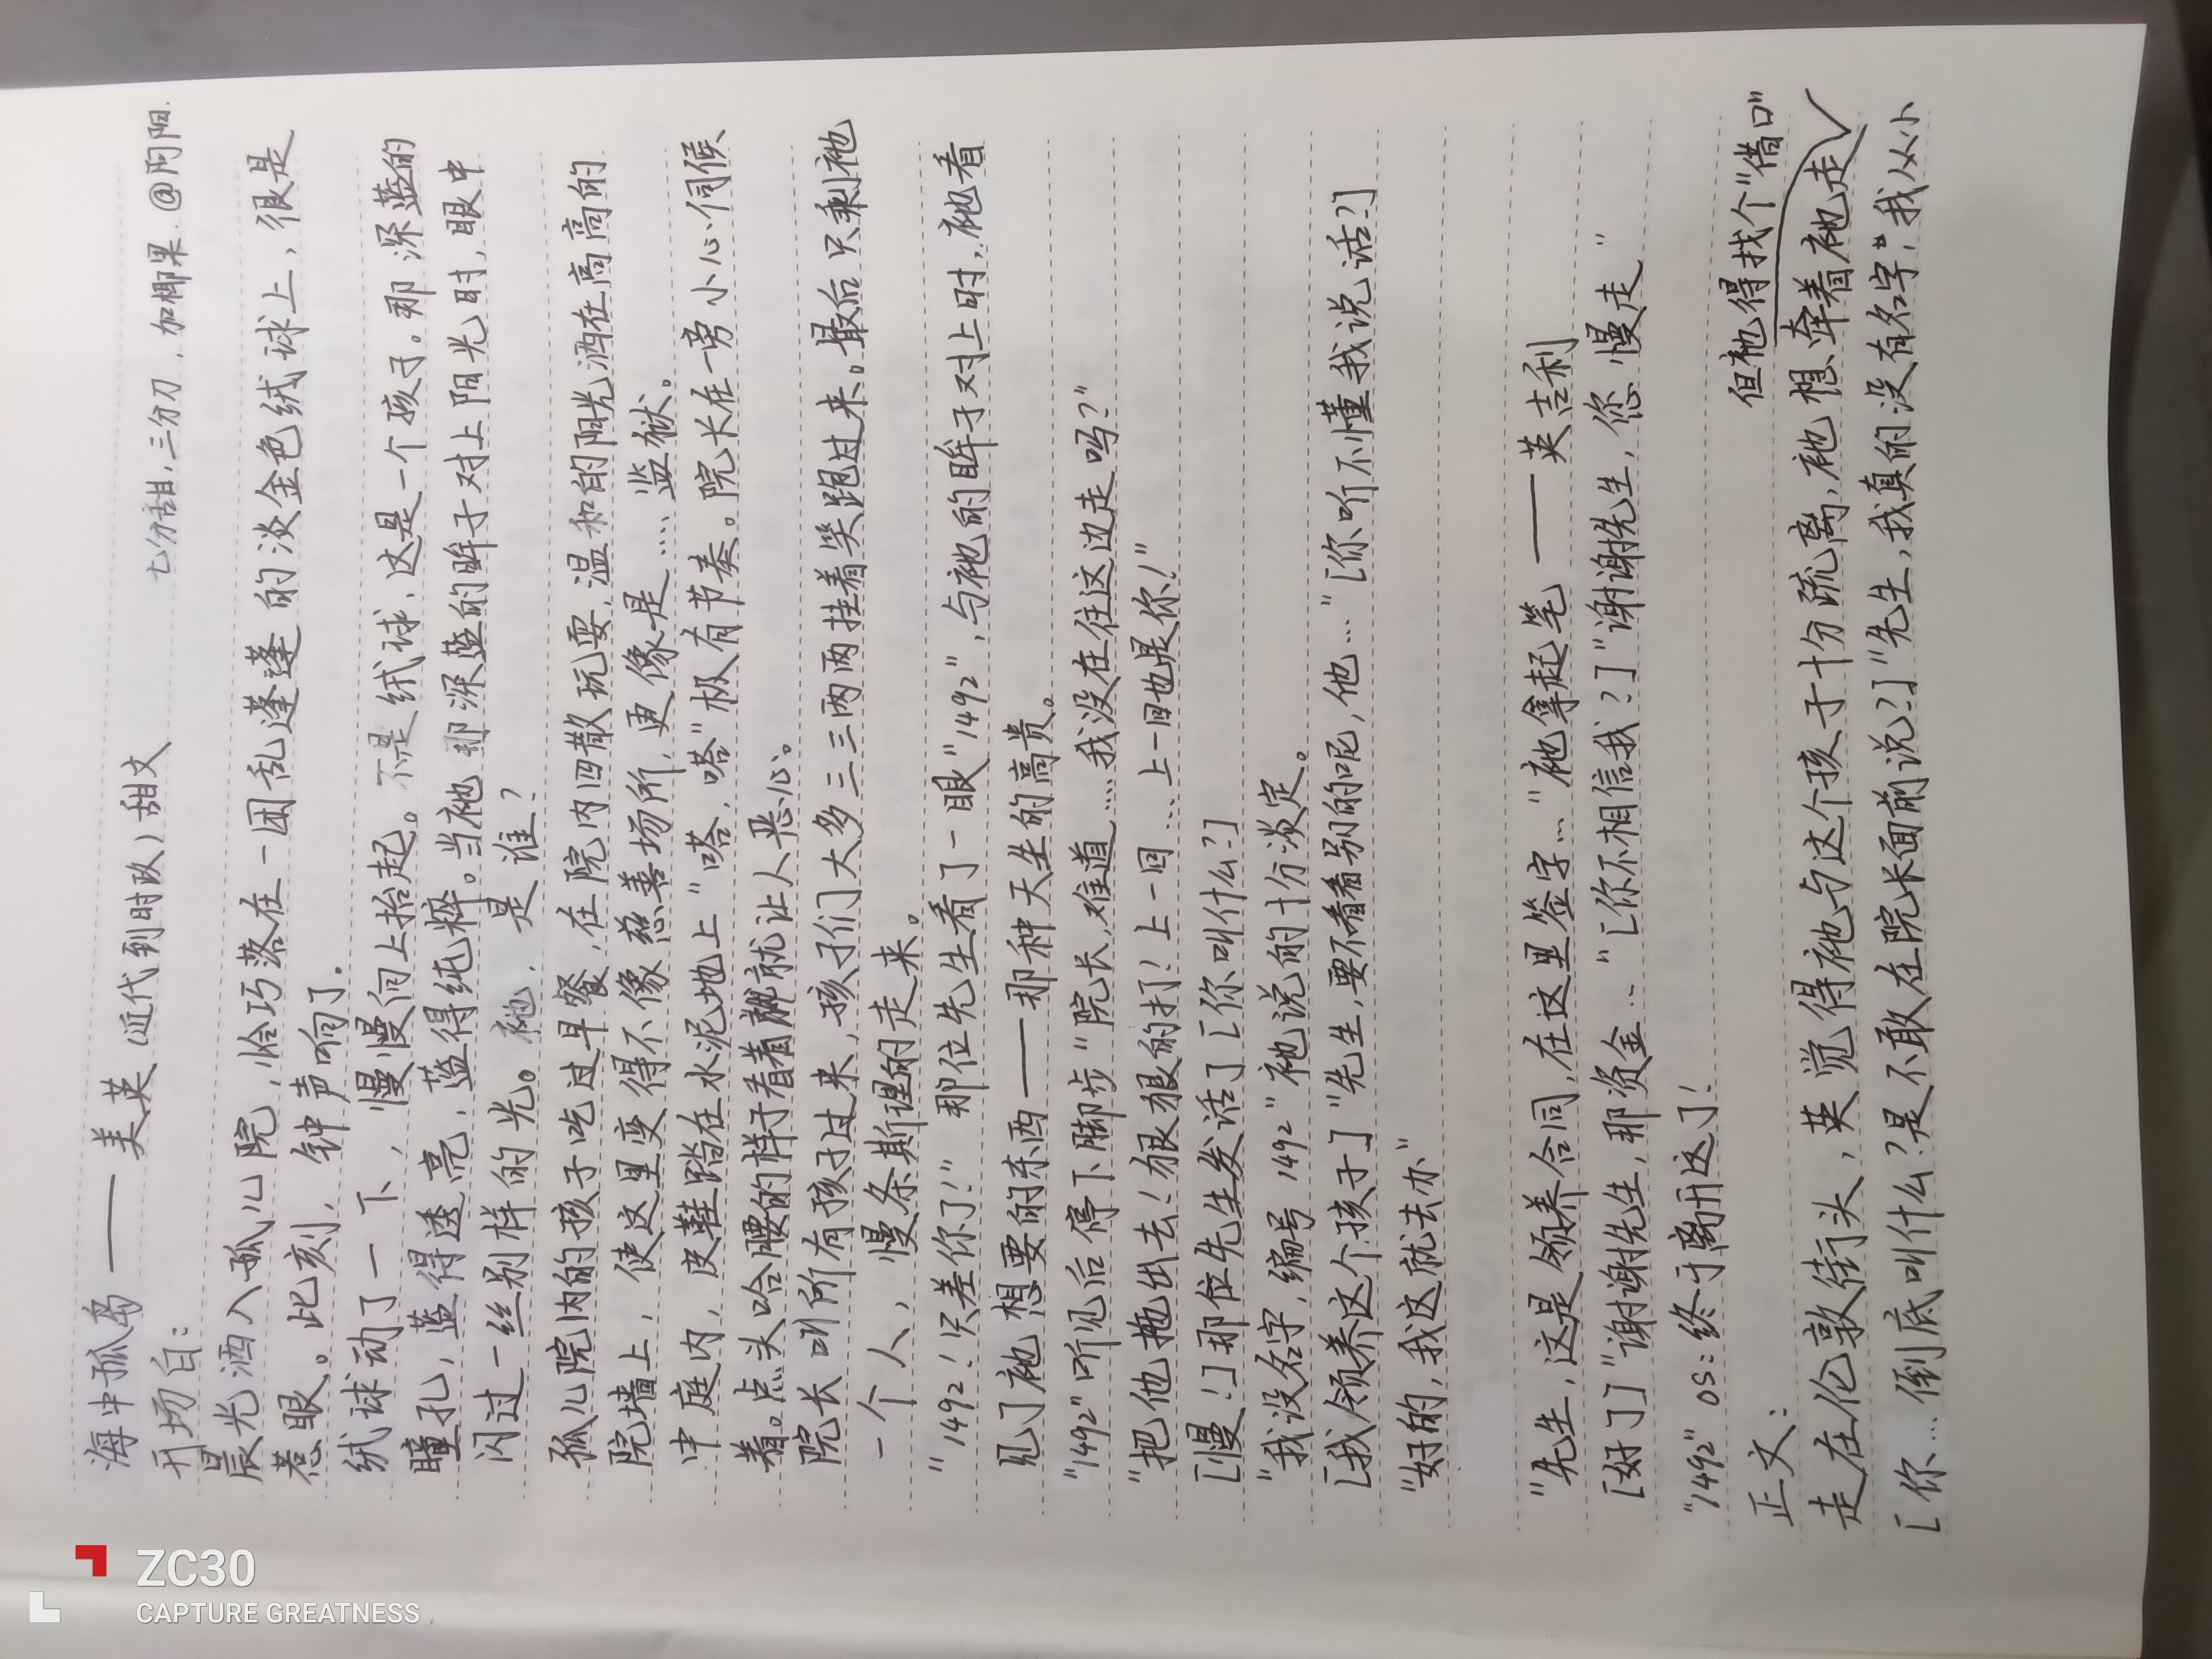 海中孤岛——美英(近代到时政)甜文
七分甜,三分刀,加椰果.@阴阳.
开场白:
晨光洒入孤儿院,恰巧落在一团乱蓬蓬的淡金色绒球上,很是
惹眼。此刻,钟声响了.
绒球动了一下,慢慢向上抬起。不是绒球,这是一个孩子。那深蓝的
瞳孔,蓝得透亮,蓝得纯粹。当祂那深蓝的眸子对上阳光时,眼中
闪过一丝别样的光。祂,是谁?
孤儿院内的孩子吃过早餐,在院内四散玩耍,温和的阳光洒在高高的
院墙上,使这里变得不像慈善场所,更像是……监狱。
中庭内,皮鞋踏在水泥地上"嗒,嗒"极有节奏。院长在一旁小心伺候
着。点头哈腰的样子看着就让人恶心。
院长叫所有孩子过来,孩子们大多三三两两挂着笑跑过来。最后只剩祂
一个人,慢条斯理的走来。
"1492!只差你了!"那位先生看了一眼"1492",与祂的眸子对上时,祂看
见了祂想要的东西——那种天生的高贵。
"1492"听见后停下脚步"院长,难道……我没在往这边走吗?"
"把他拖出去!狠狠的打!上一回…上一回也是你!"
[慢!]那位先生发话了[你叫什么?]
"我没名字,编号1492"祂说的十分淡定。
[我领养这个孩子]"先生,要不看看别的呢,他…"[你听不懂我说话?]
"好的,我这就去办"
"先生,这是领养合同,在这里签字…"祂拿起笔——英吉利
[好了]"谢谢先生,那资金…"[你不相信我?]"谢谢先生,您慢走"
"1492"os:终于离开这了!
正文:
但祂得找个"借口"
走在伦敦街头,英觉得祂与这个孩子十分疏离,祂想牵着祂走
[你…倒底叫什么?是不敢在院长面前说?]"先生,我真的没有名字","我从小
ZC30
CAPTURE GREATNESS